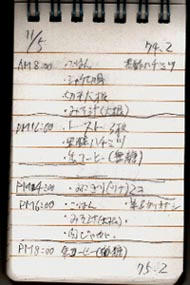 11/5 74.2
AM8:00 ・ごはん 黒酢ハチミツ
・みそ汁(大根)
PM12:00 ・トースト
黒酢ハチミツ
・缶コーヒー(無糖)
PM4:00 ・おにぎり
PM6:00 ・ごはん
・みそ汁(大根)
・肉じゃが
PM8:00 缶コーヒー(無糖)
75.2